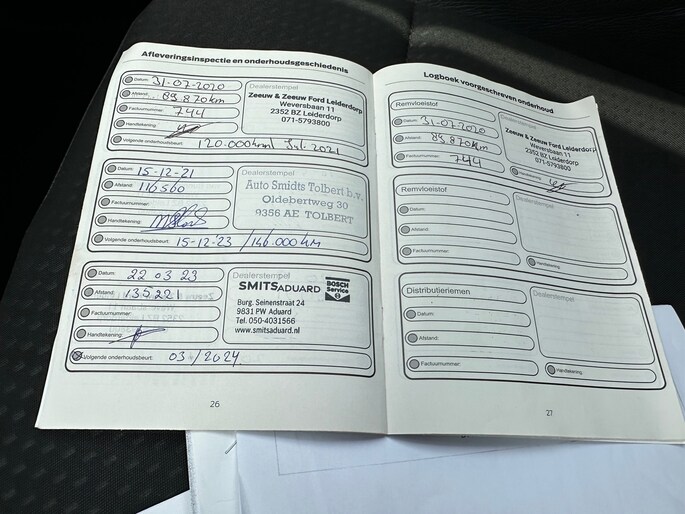 Afleveringsinspectie en onderhoudsgeschiedenis
Datum: 31-07-2020
Afstand: 89.870km
Factuurnummer: 744
Handtekening:
Volgende onderhoudsbeurt: 120.000km Juli 2021
Dealerstempel
Zeeuw & Zeeuw Ford Leiderdorp
Weversbaan 11
2352 BZ Leiderdorp
071-5793800
Datum: 15-12-21
Afstand: 116560
Factuurnummer:
Handtekening:
Volgende onderhoudsbeurt: 15-12-23 / 146.000 km
Dealerstempel
Auto Smidts Tolbert b.v.
Oldebertweg 30
9356 AE TOLBERT
Datum: 22 03 23
Afstand: 135221
Factuurnummer:
Handtekening:
Volgende onderhoudsbeurt: 03/2024
Dealerstempel
SMITSADUARD
BOSCH
Service
Burg. Seinenstraat 24
9831 PW Aduard
Tel. 050-4031566
www.smitsaduard.nl
26
Logboek voorgeschreven onderhoud
Remvloeistof
Datum: 31-07-2020
Afstand: 89.870km
Factuurnummer: 744
Dealerstempel
Zeeuw & Zeeuw Ford Leiderdorp
Weversbaan 11
2352 BZ Leiderdorp
071-5793800
Handtekening:
Remvloeistof
Datum:
Afstand:
Factuurnummer:
Dealerstempel
Handtekening:
Distributieriemen
Datum:
Afstand:
Factuurnummer:
Dealerstempel
Handtekening:
27